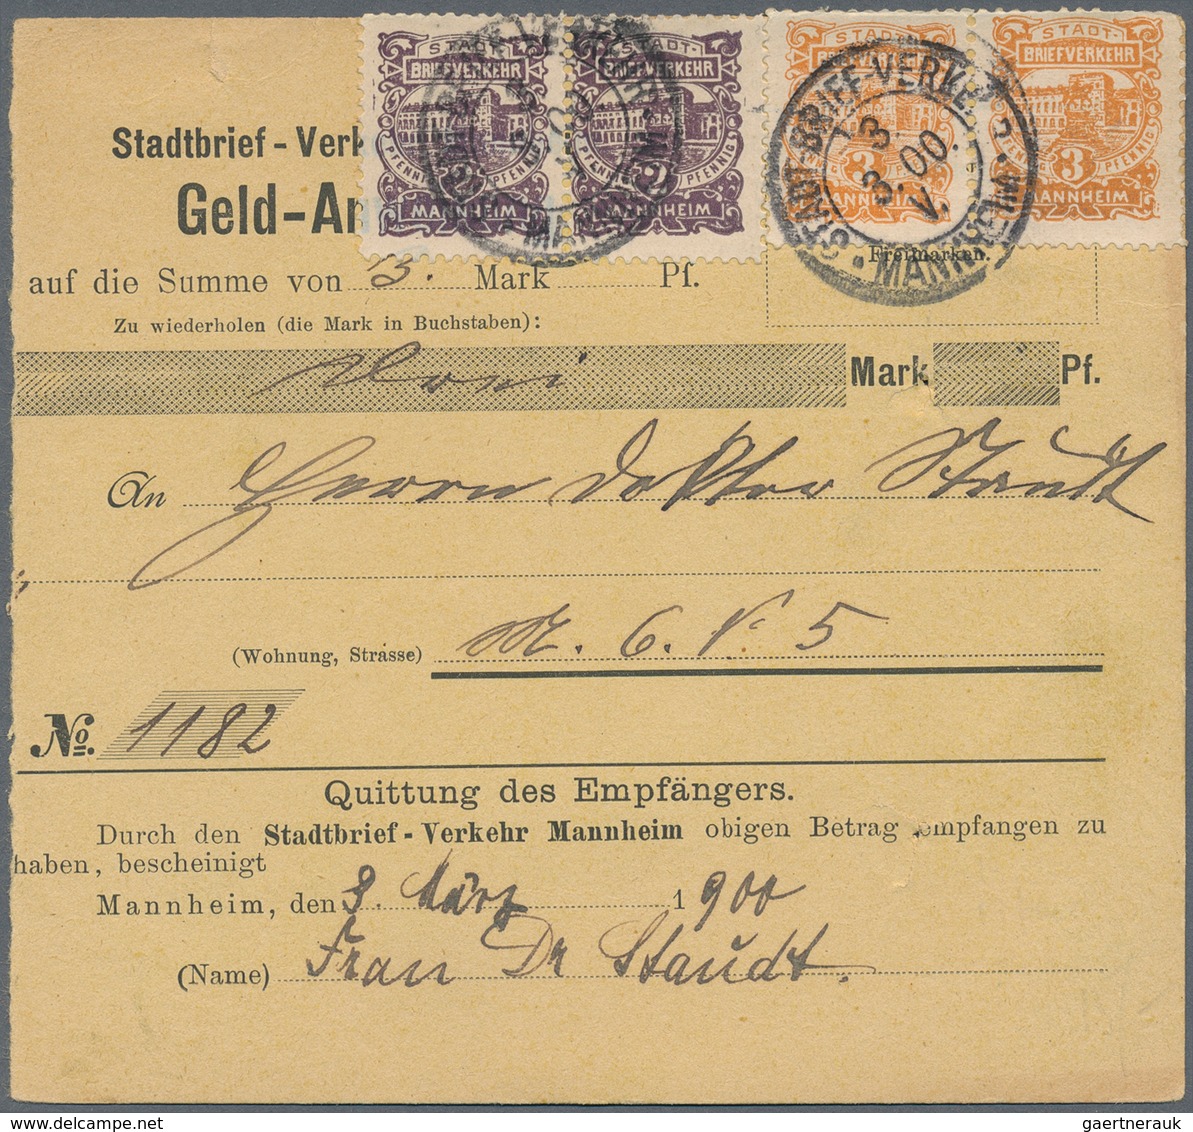 STADT-
BRIEFVERKEHR
PFENNIG 2 PFENNIG
MANNHEIM
STADT-
BRIEFVERKEHR
PFENNIG 2 PFENNIG
MANNHEIM
STADT-
BRIEFVERKEHR
PFENNIG 3 PFENNIG
MANNHEIM
STADT-
BRIEFVERKEHR
PFENNIG 3 PFENNIG
MANNHEIM
STADT-BRIEF-VERKEHR
3 3
3. 00.
V.
MANNHEIM
Stadtbrief-Verk
Geld-An
Freimarken.
auf die Summe von 3. Mark Pf.
Zu wiederholen (die Mark in Buchstaben):
Mark Pf.
An Herrn Doktor Staudt
(Wohnung, Strasse) M. 6. N. 5
No. 1182
Quittung des Empfängers.
Durch den Stadtbrief-Verkehr Mannheim obigen Betrag empfangen zu
haben, bescheinigt
Mannheim, den 3. März 1900
(Name) Frau Dr Staudt.
gaertnerauk